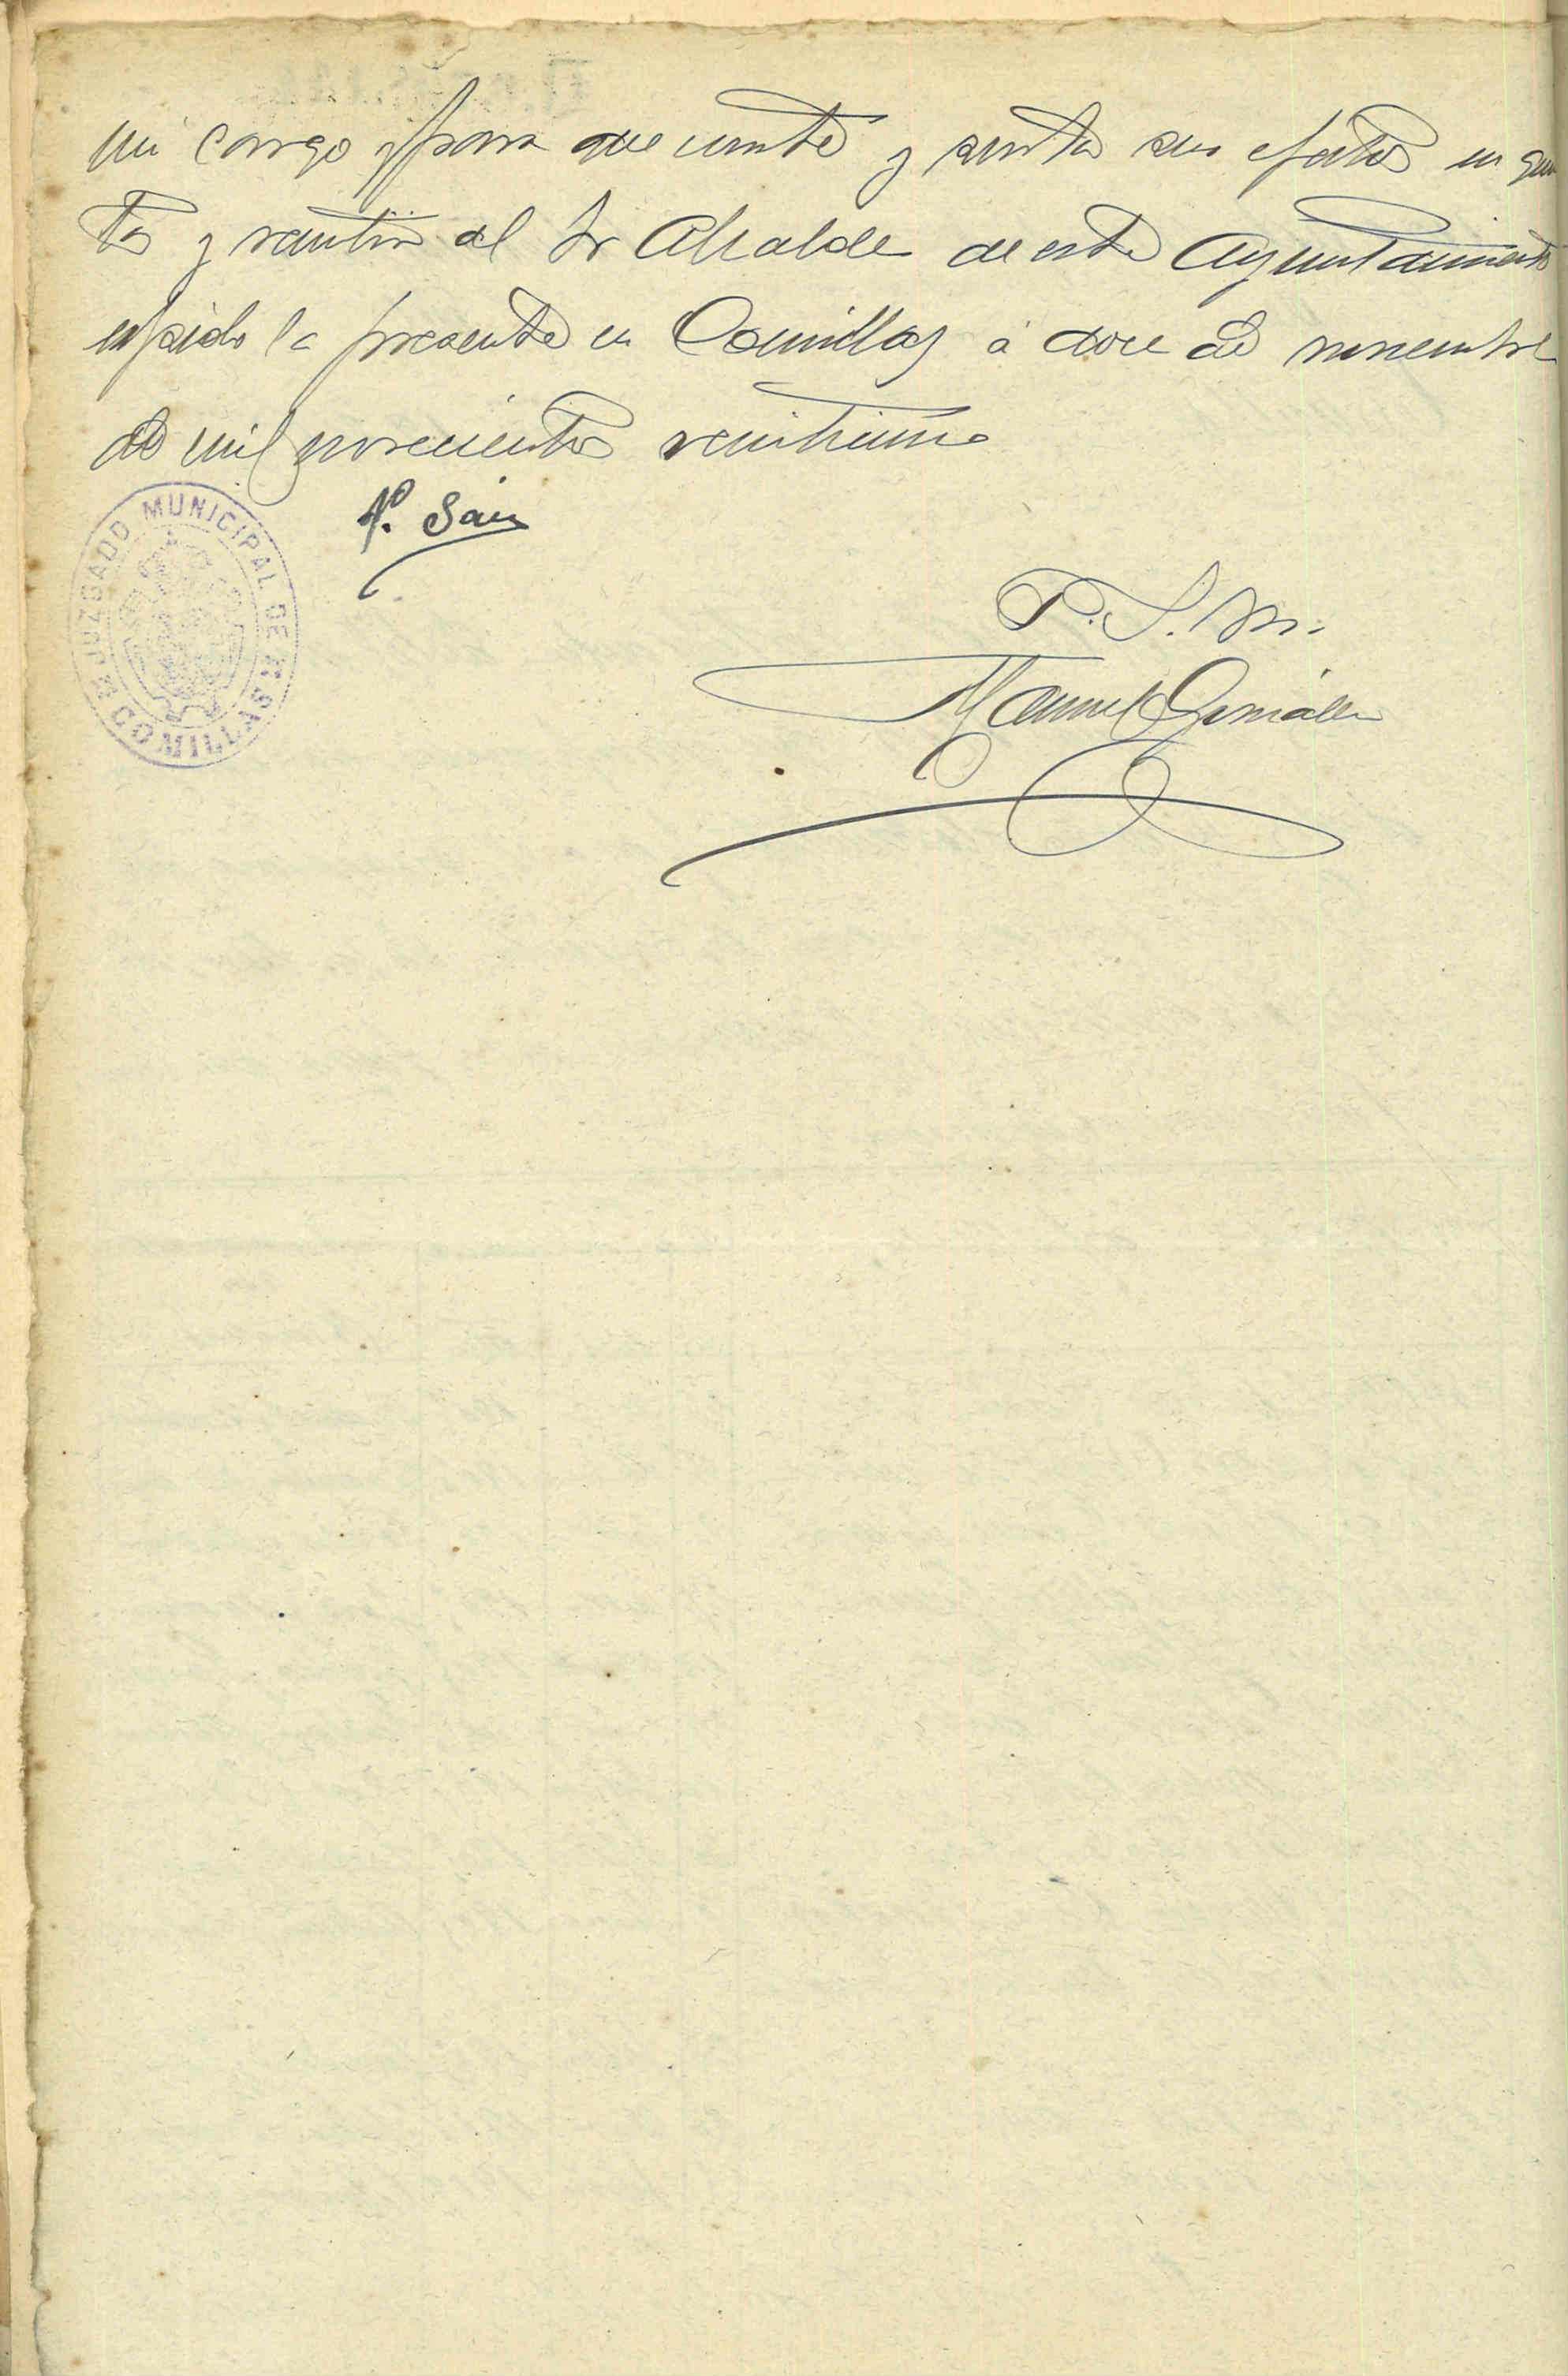 mi cargo y para que conste y surta sus efectos en quin
tas y remitir al Sr Alcalde de este Ayuntamiento
expido la presente en Comillas á doce de noviembre
de mil novecientos veintiuno
JUZGADO MUNICIPAL DE COMILLAS
Sáiz
P. S. M.
Manuel González